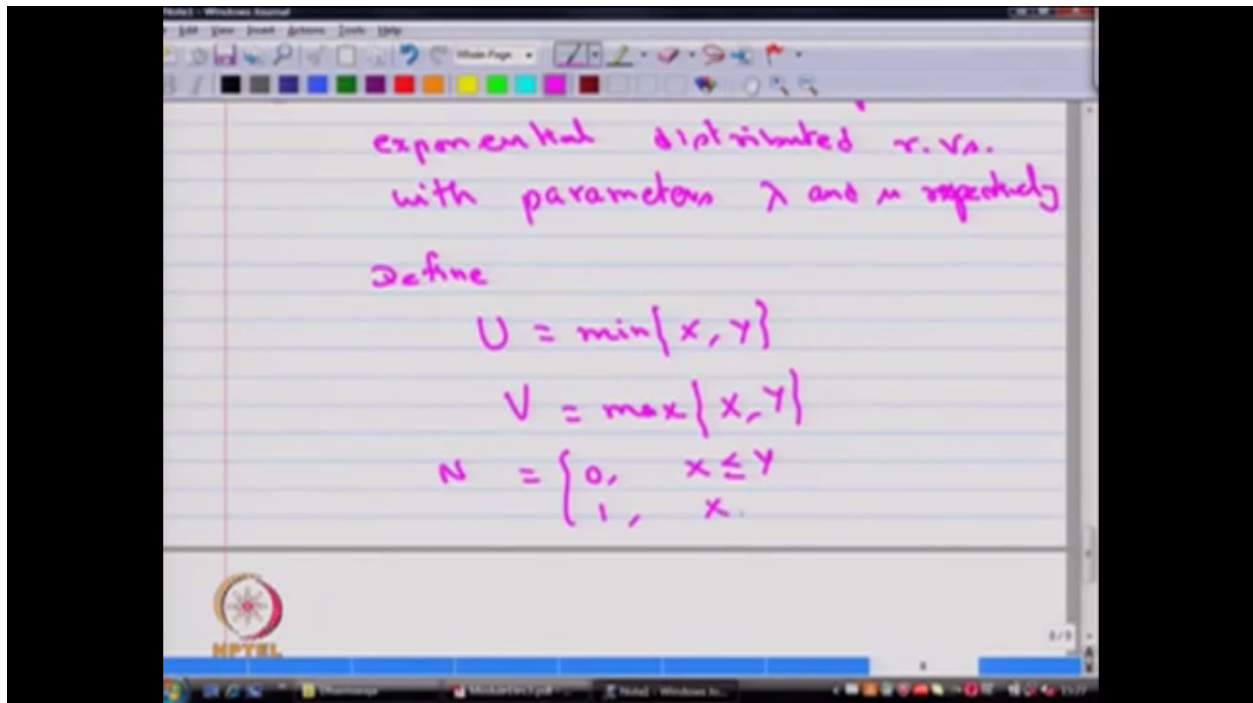 Note1 - Windows Journal
Edit View Insert Actions Tools Help
Whole Page
exponential distributed r.vs.
with parameters λ and μ respectively
Define
U = min{X, Y}
V = max{X, Y}
N = { 0, X ≤ Y
1, X
NPTEL
8/9
Dharmaraja
Note1 - Windows Jo...